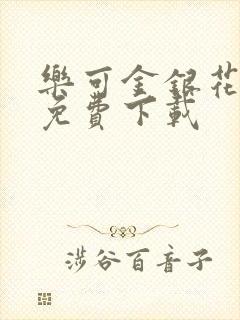 樂可金銀花
免費下載
涉谷百音子